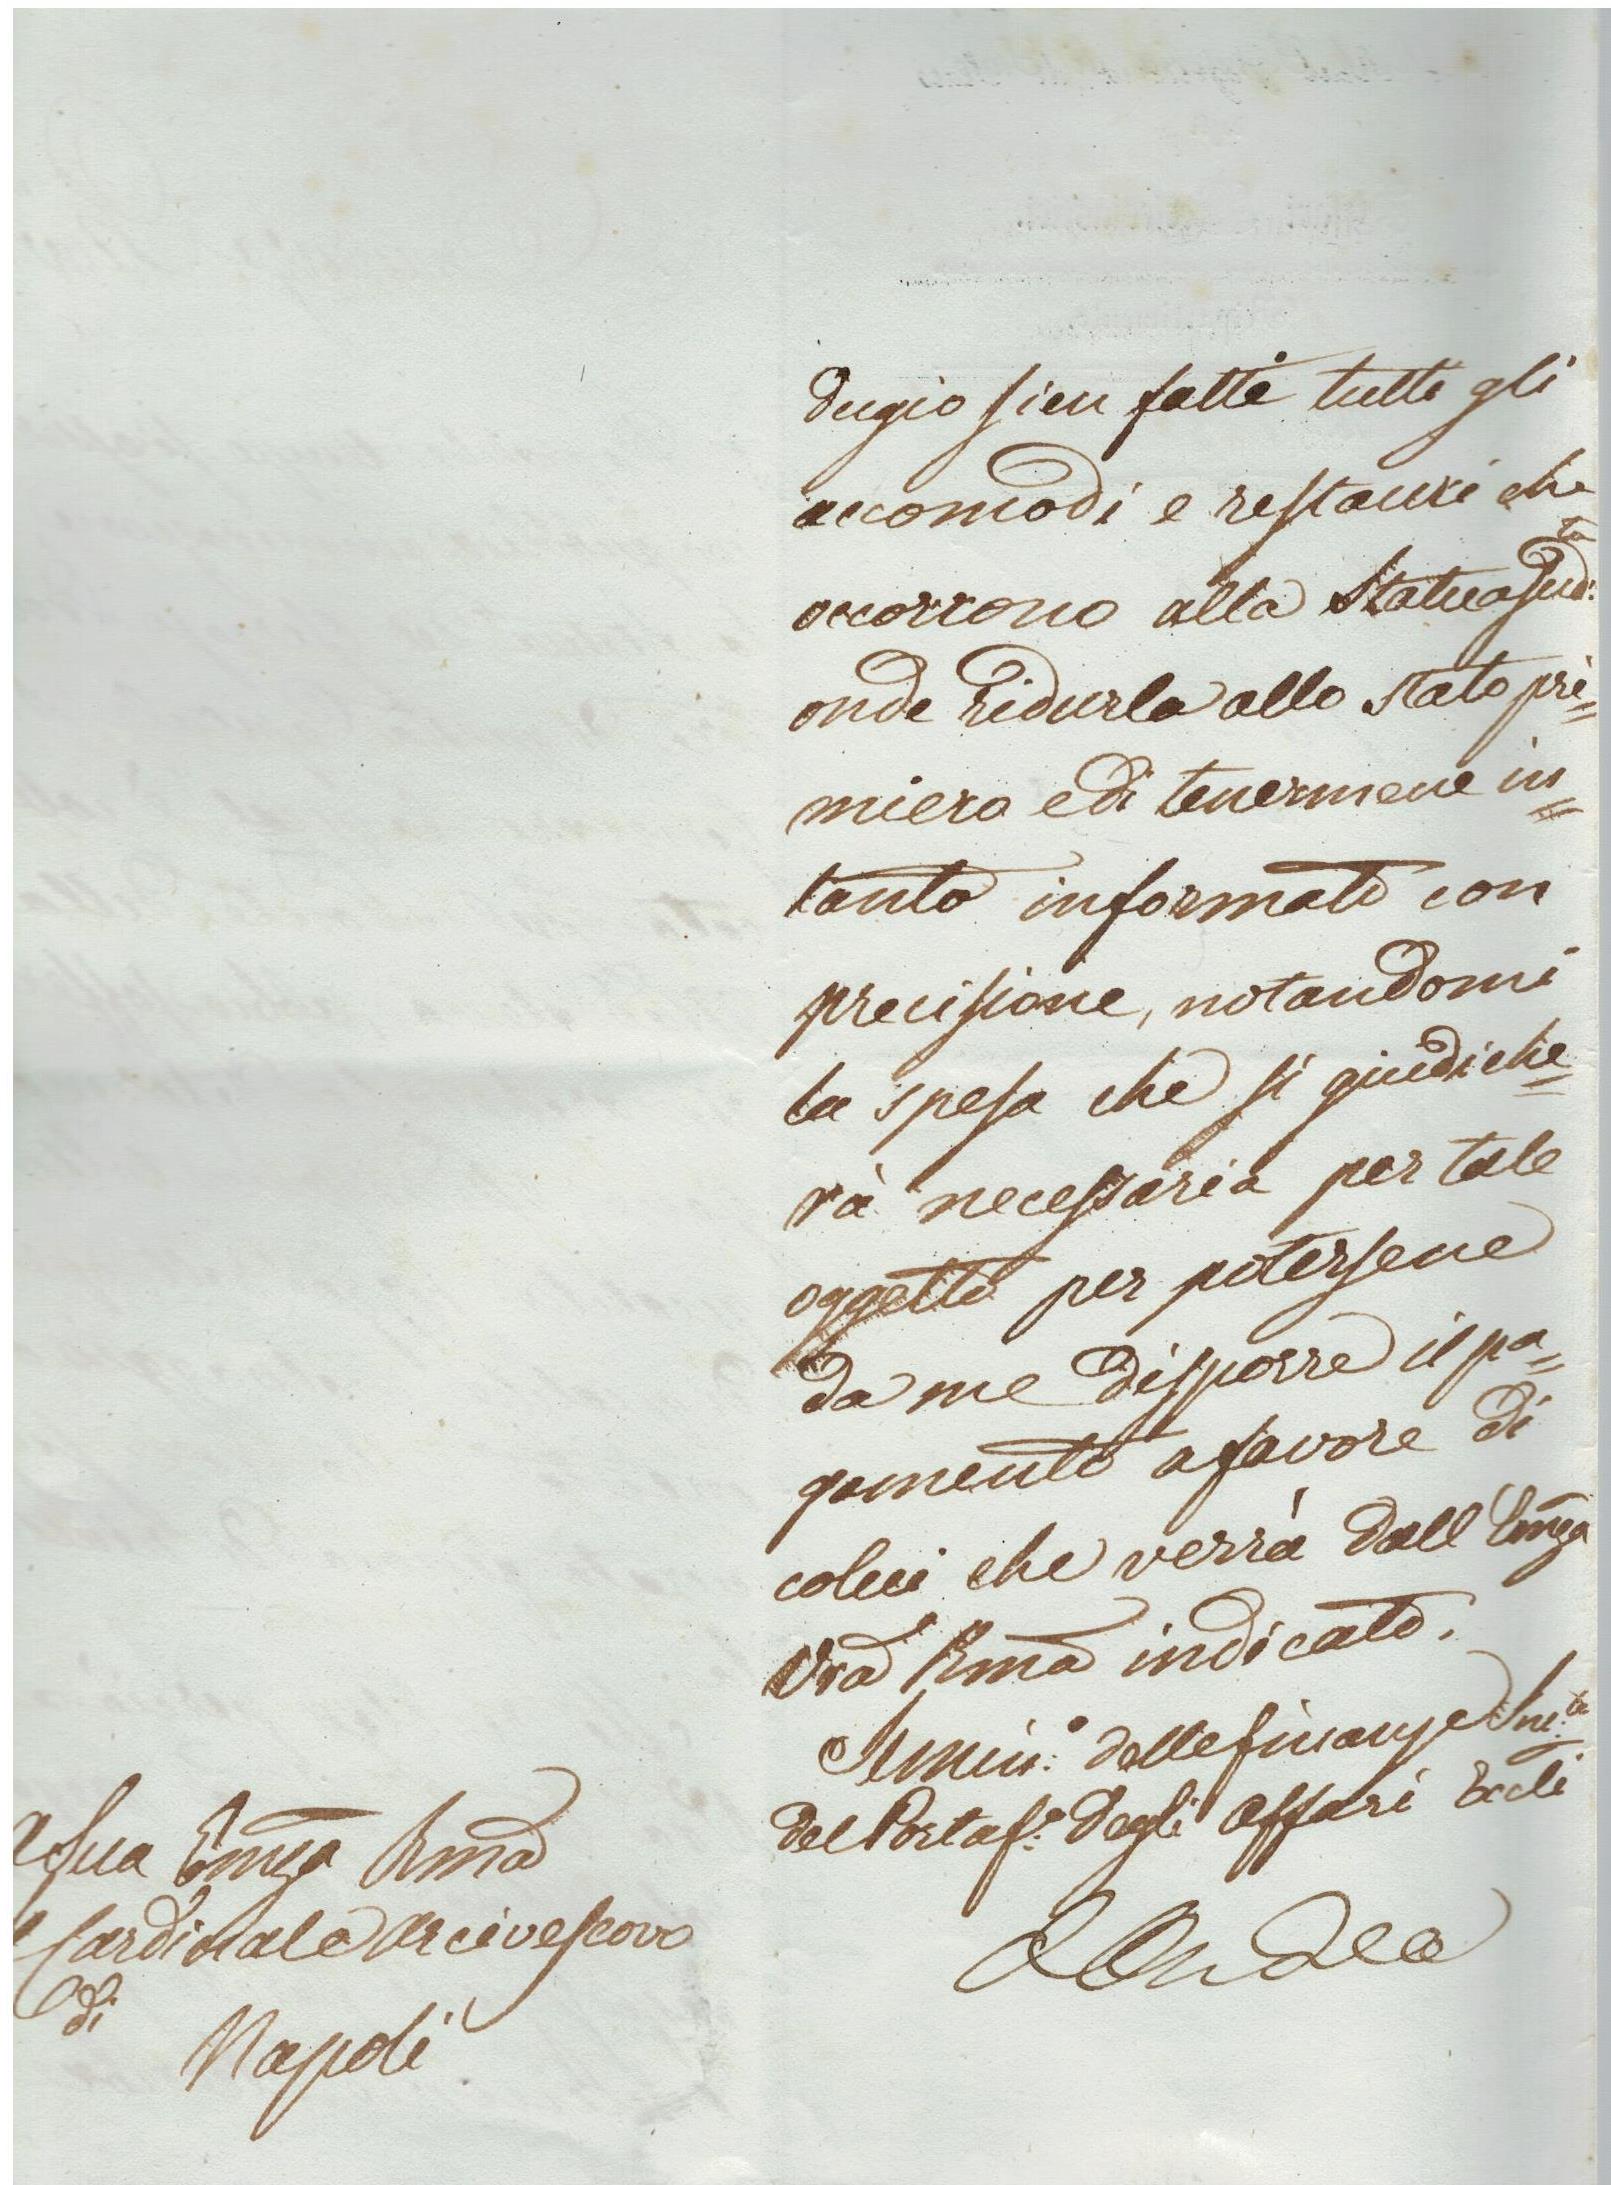 dugio sien fatti tutti gli
accomodi e restauri che
occorrono alla Statua sud:ta
onde ridurla allo stato pri=
miero e di tenermene in=
tanto informato con
precisione, notandomi
la spesa che si giudiche=
rà necessaria per tale
oggetto per potersene
da me disporre il pa=
gamento a favore di
colui che verrà dall'Emza
Vra Rma indicato.
Il Min:o delle finanze
del Portaf:o degli affari Eccli
D'Andrea
A Sua Emza Rma
Cardinale Arcivescovo
di
Napoli